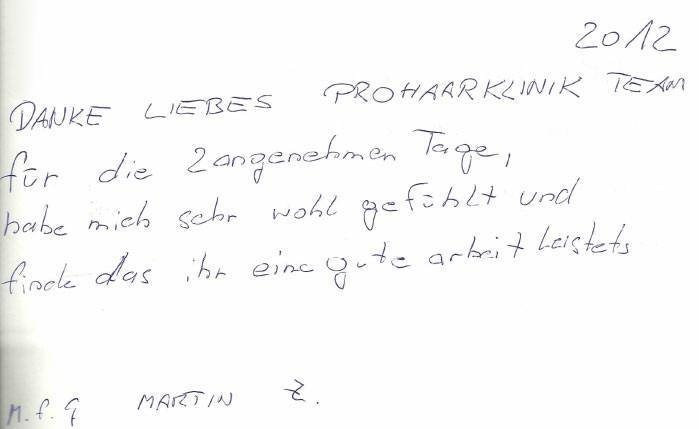 2012
DANKE LIEBES PROHAARKLINIK TEAM
für die 2 angenehmen Tage,
habe mich sehr wohl gefühlt und
finde das ihr eine gute arbeit Leistets
M.f.g MARTIN Z.